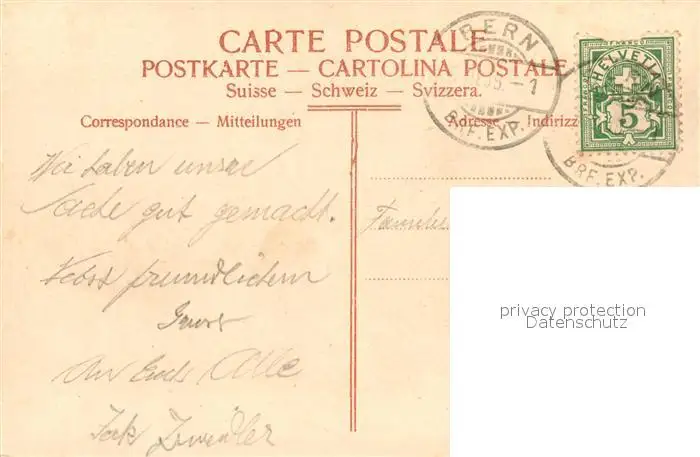 CARTE POSTALE
POSTKARTE — CARTOLINA POSTALE
Suisse — Schweiz — Svizzera.
Correspondance — Mitteilungen
Adresse — Indirizz
BERN
BRF. EXP.
HELVETIA
5
BRF. EXP.
Wir haben unsere
Sache gut gemacht.
Nebst freundlichem
Gruss
An Euch Alle
Familie
privacy protection
Datenschutz